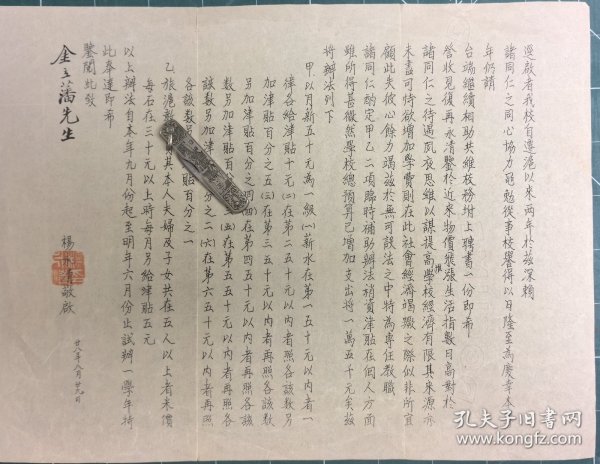 逕啟者我校自遷滬以來兩年於茲深賴
諸同仁之同心協力黽勉從事校譽得以日隆至為慶幸本
年仍請
台端繼續相助共維校務坿上聘書一份即希
詧收見復再永清鑒於近來物價飛漲生活指數日高對於
諸同仁之待遇夙夜思維以謀提高惟學校經濟有限其來源亦
未盡可恃欲增加學費則在此社會經濟竭蹶之際似非所宜
顧此失彼心餘力絀茲於無可設法之中特為專任教職
諸同仁酌定甲乙二項臨時補助辦法稍資津貼在個人方面
雖所得甚微然學校總預算已增加支出將一萬五千元矣茲
將辦法列下
甲以月薪五十元為一級(一)薪水在第一五十元以內者一
律各給津貼十元(二)在第二五十元以內者照各該數另
加津貼百分之五(三)在第三五十元以內者再照各該數
另加津貼百分之四(四)在第四五十元以內者再照各該
數另加津貼百 (五)在第五五十元以內者再照各
該數另加津 分之二(六)在第六五十元以內者再照
各該數另 貼百分之一
乙旅滬教 其本人夫婦及子女共在五人以上者米價
每石在三十元以上時每月另給津貼五元
以上辦法自本年九月份起至明年六月份止試辦一學年特
此奉達即希
鑒閱此致
金立藩先生
楊永清敬啟
廿八年八月廿九日
孔夫子旧书网
www.kongfz.com